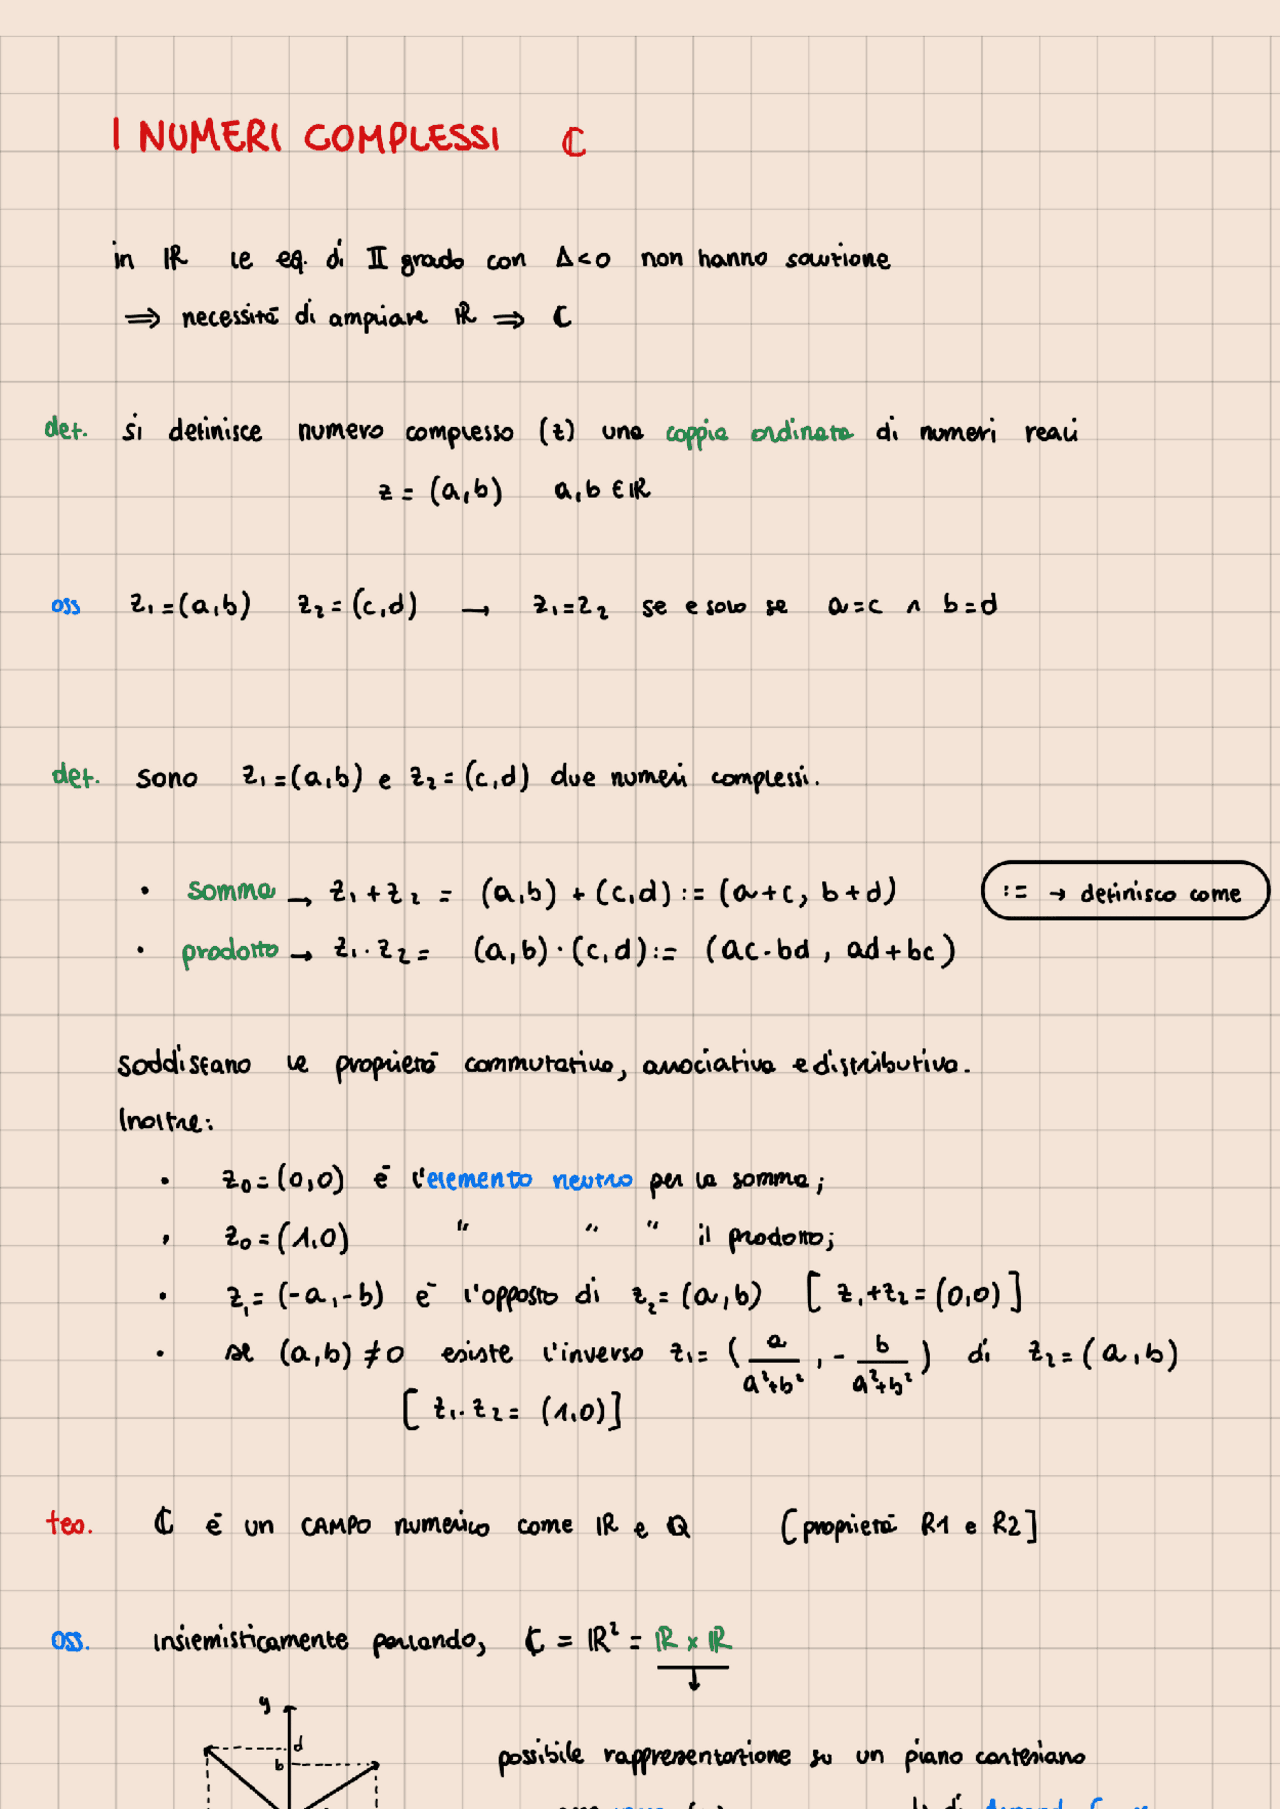 I NUMERI COMPLESSI ℂ
in ℝ le eq. di II grado con Δ<0 non hanno soluzione
⇒ necessità di ampliare ℝ ⇒ ℂ
def. si definisce numero complesso (z) una coppia ordinata di numeri reali
z = (a,b) a,b ∈ ℝ
oss z₁=(a,b) z₂=(c,d) → z₁=z₂ se e solo se a=c ∧ b=d
def. sono z₁=(a,b) e z₂=(c,d) due numeri complessi.
• somma → z₁+z₂ = (a,b)+(c,d):=(a+c, b+d)
:= → definisco come
• prodotto → z₁·z₂= (a,b)·(c,d):= (ac-bd, ad+bc)
soddisfano le proprietà commutativa, associativa e distributiva.
Inoltre:
• z₀=(0,0) è l'elemento neutro per la somma;
• z₀=(1,0) " " " il prodotto;
• z₁=(-a,-b) è l'opposto di z₂=(a,b) [z₁+z₂=(0,0)]
• se (a,b)≠0 esiste l'inverso z₁= (a/a²+b², -b/a²+b²) di z₂=(a,b)
[z₁·z₂= (1,0)]
teo. ℂ è un CAMPO numerico come ℝ e ℚ [proprietà R1 e R2]
oss. insiemisticamente parlando, ℂ = ℝ² = ℝ x ℝ
y
d
b
possibile rappresentazione su un piano cartesiano